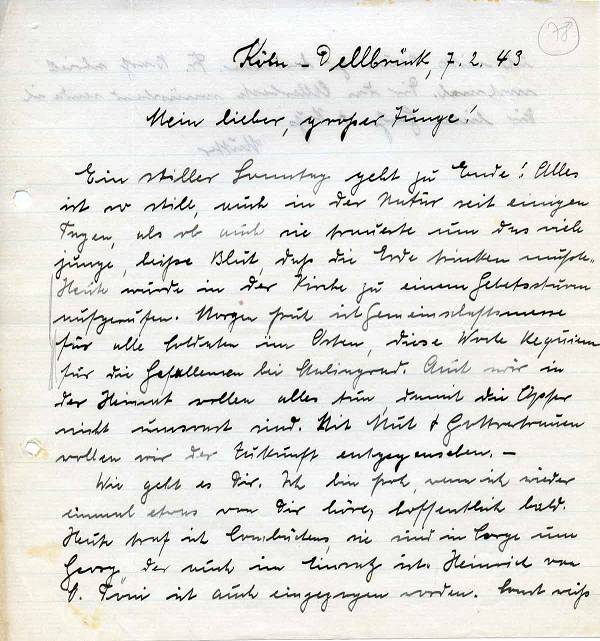 78.
Köln-Dellbrück, 7.2.43
Mein lieber, großer Junge!
Ein stiller Sonntag geht zu Ende! Alles
ist so still, auch in der Natur seit einigen
Tagen, als ob auch sie trauerte um das viele
junge, heiße Blut, daß die Erde trinken mußte.
Heute wurde in der Kirche zu einem Gebetssturm
aufgerufen. Morgen früh ist Gemeinschaftsmesse
für alle Soldaten im Osten, diese Woche Requiem
für die Gefallenen bei Stalingrad. Auch wir in
der Heimat wollen alles tun, damit die Opfer
nicht umsonst sind. Mit Mut & Gottvertrauen
wollen wir der Zukunft entgegensehen. –
Wie geht es Dir. Ich bin froh, wenn ich wieder
einmal etwas von Dir höre, hoffentlich bald.
Heute traf ich sie sind in Sorge um
Georg, der auch im Einsatz ist. Heinrich von
T. Töni ist auch eingezogen worden. Sonst weiß